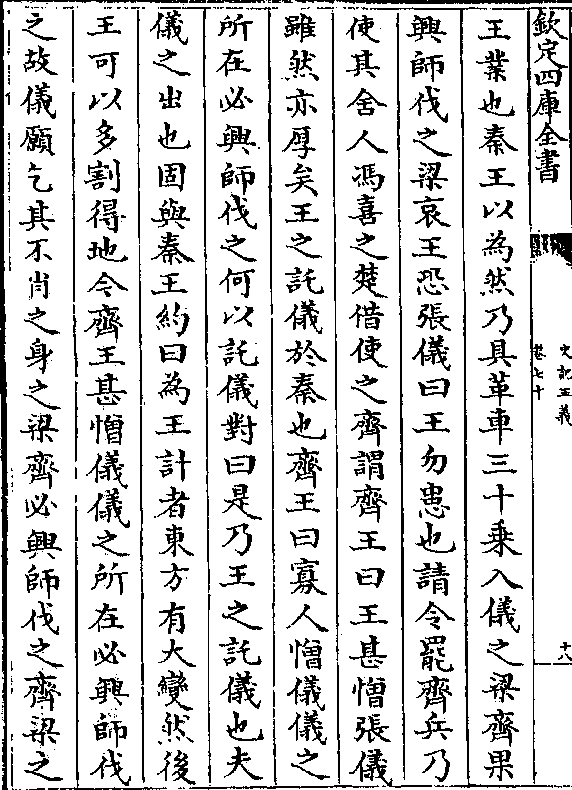 欽定四庫全書
史記正義
卷七十
十八
王業也秦王以為然乃具革車三十乗入儀之梁齊果
興師伐之梁哀王恐張儀曰王勿患也請令罷齊兵乃
使其舍人馮喜之楚借使之齊謂齊王曰王甚憎張儀
雖然亦厚矣王之託儀於秦也齊王曰寡人憎儀儀之
所在必興師伐之何以託儀對曰是乃王之託儀也夫
儀之出也固與秦王約曰為王計者東方有大變然後
王可以多割得地今齊王甚憎儀儀之所在必興師伐
之故儀願乞其不肖之身之梁齊必興師伐之齊梁之